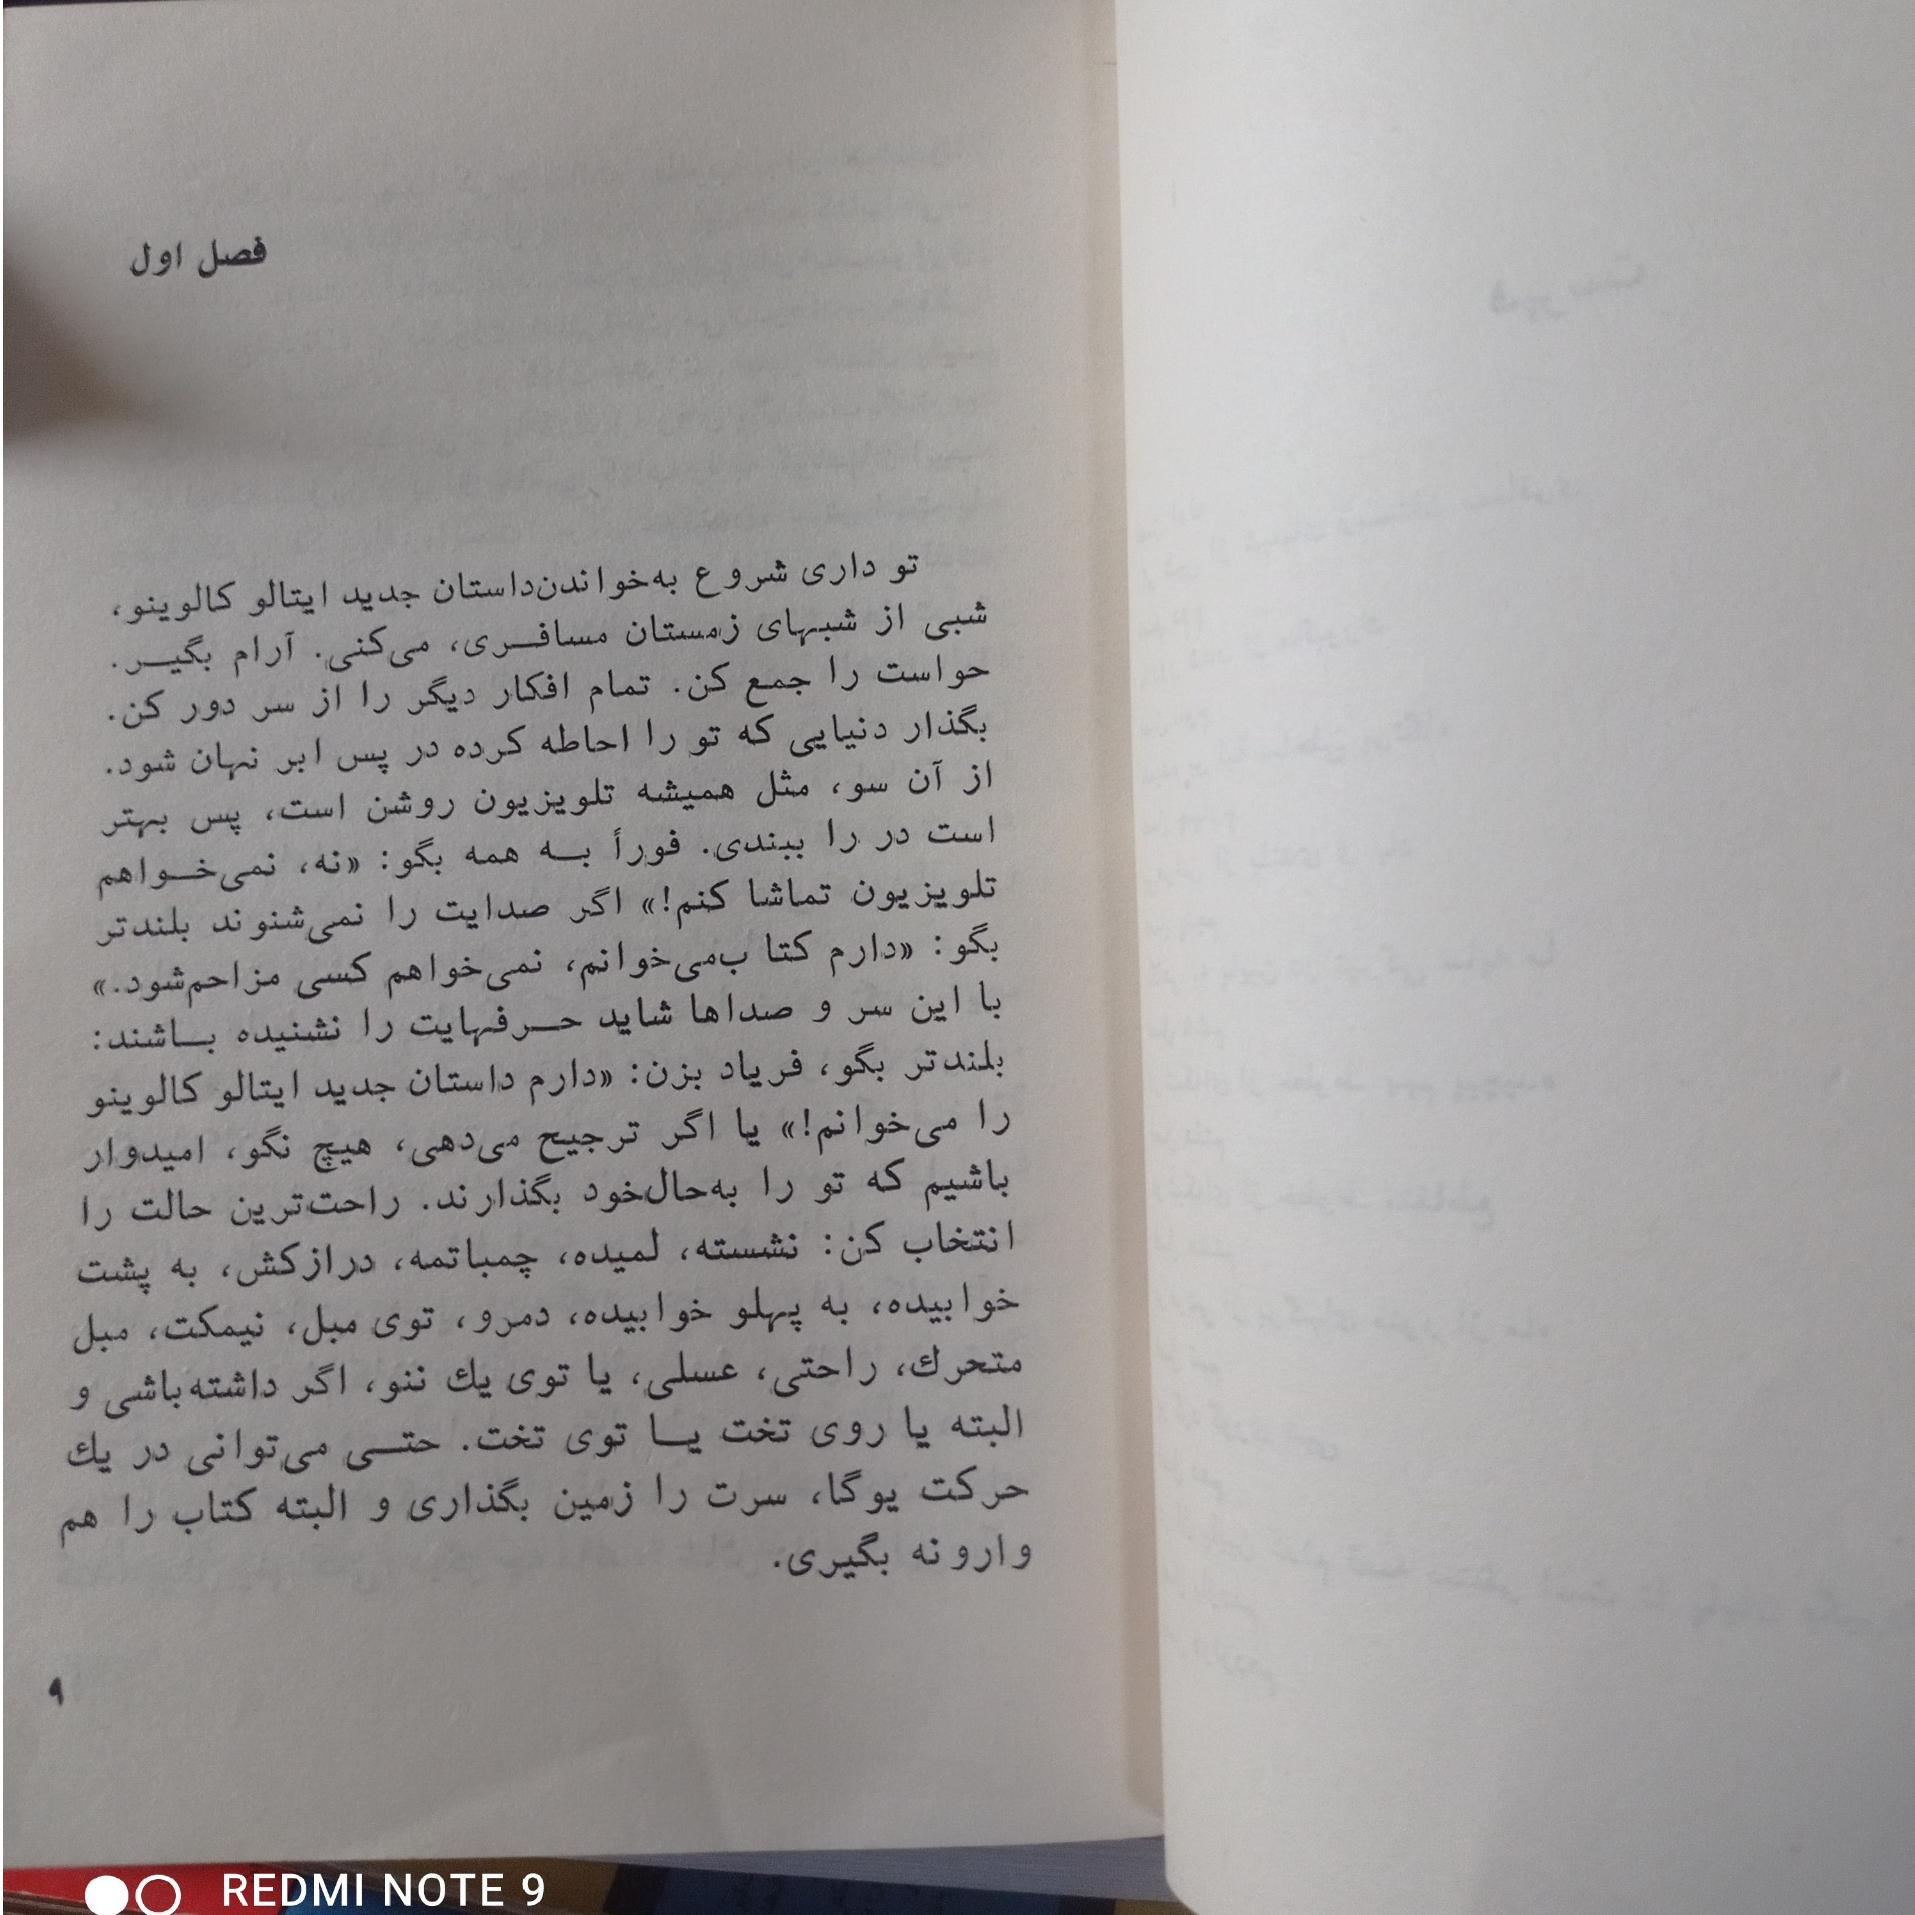 فصل اول
تو داری شروع به‌خواندن‌داستان جدید ایتالو کالوینو،
شبی از شبهای زمستان مسافــری، می‌کنی. آرام بگیــر.
حواست را جمع کن. تمام افکار دیگر را از سر دور کن.
بگذار دنیایی که تو را احاطه کرده در پس ابر نهان شود.
از آن سو، مثل همیشه تلویزیون روشن است، پس بهتر
است در را ببندی. فوراً بــه همه بگو: «نه، نمی‌خــواهم
تلویزیون تماشا کنم!» اگر صدایت را نمی‌شنوند بلندتر
بگو: «دارم کتاب‌می‌خوانم، نمی‌خواهم کسی مزاحم‌شود.»
با این سر و صداها شاید حــرفهایت را نشنیده بــاشند:
بلندتر بگو، فریاد بزن: «دارم داستان جدید ایتالو کالوینو
را می‌خوانم!» یا اگر ترجیح می‌دهی، هیچ نگو، امیدوار
باشیم که تو را به‌حال‌خود بگذارند. راحت‌ترین حالت را
انتخاب کن: نشسته، لمیده، چمباتمه، درازکش، به پشت
خوابیده، به پهلو خوابیده، دمرو، توی مبل، نیمکت، مبل
متحرك، راحتی، عسلی، یا توی یك ننو، اگر داشته‌باشی و
البته یا روی تخت یــا توی تخت. حتــی می‌توانی در یك
حرکت یوگا، سرت را زمین بگذاری و البته کتاب را هم
وارونه بگیری.
۹
REDMI NOTE 9